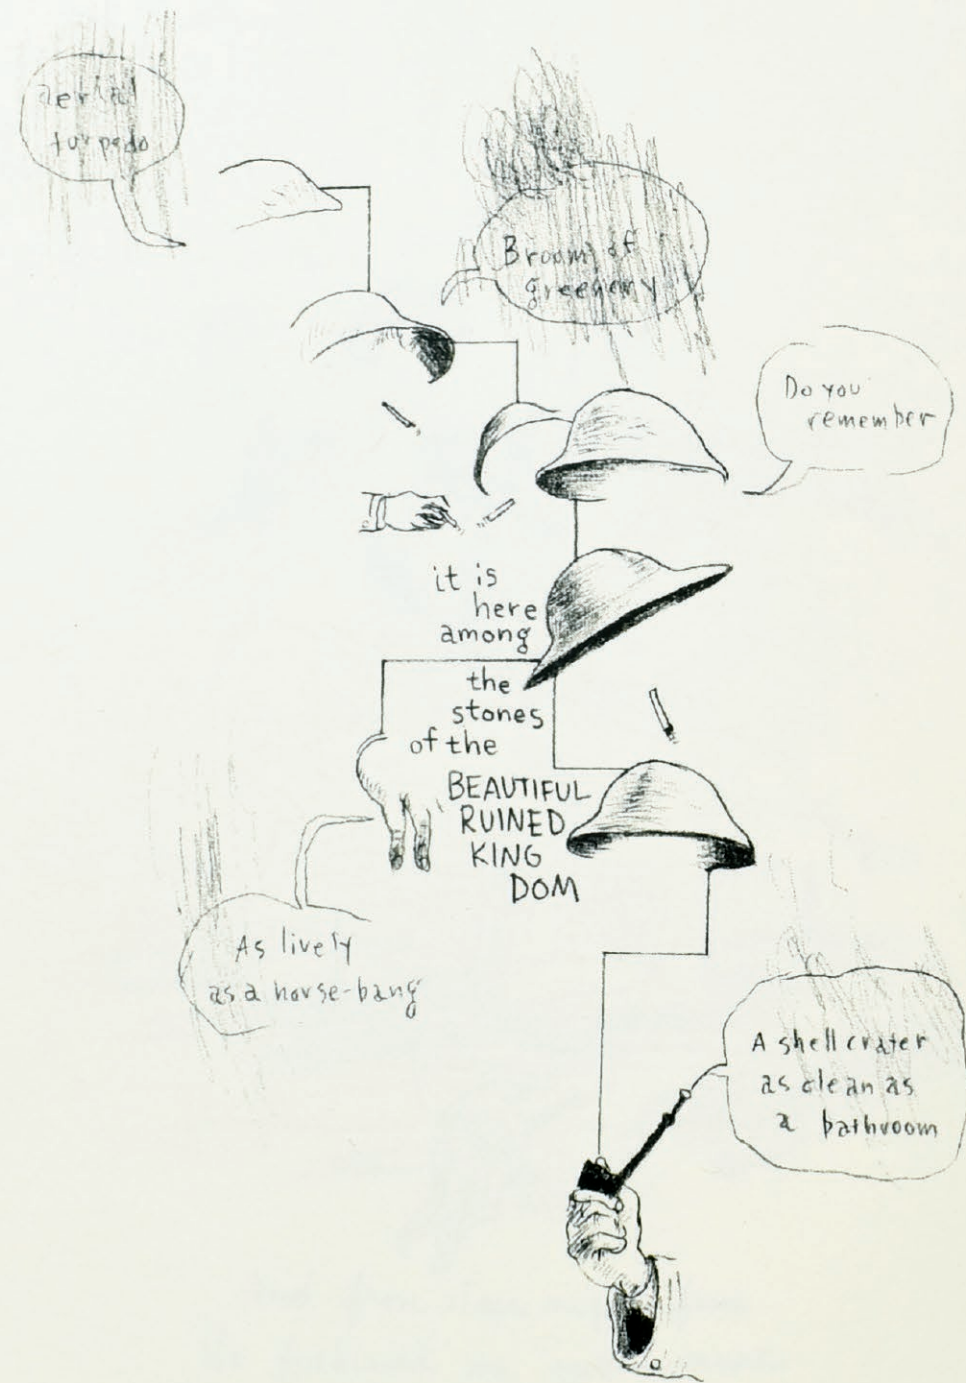 aerial
torpedo
Broom of
greenery
Do you
remember
it is
here
among
the
stones
of the
BEAUTIFUL
RUINED
KING
DOM
As lively
as a horse-bang
A shell crater
as clean as
a bathroom